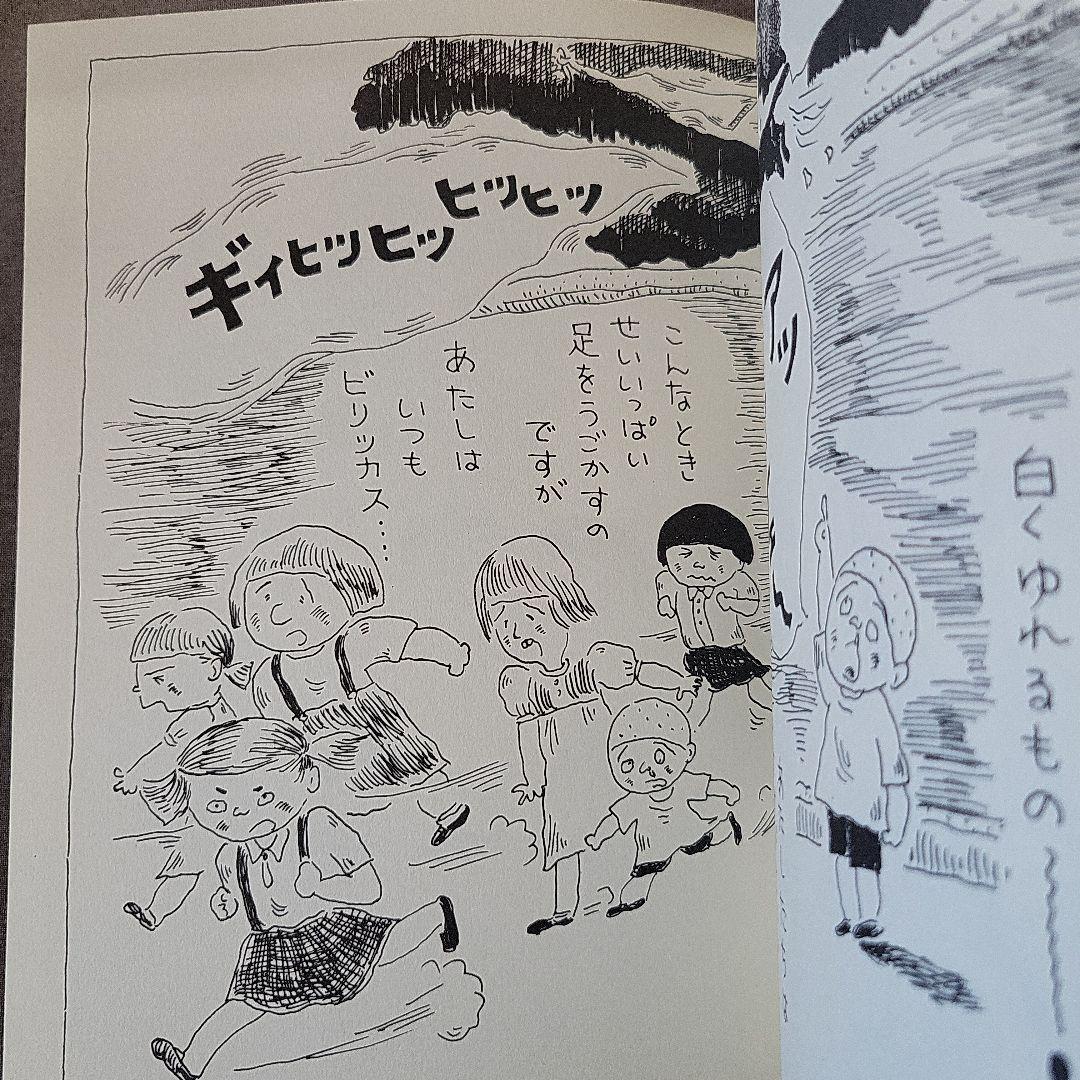 白くゆれるもの〜
アッ
ギィヒッヒッヒッヒッ
こんなとき
せいいっぱい
足をうごかすの
ですが
あたしは
いつも
ビリッカス‥‥